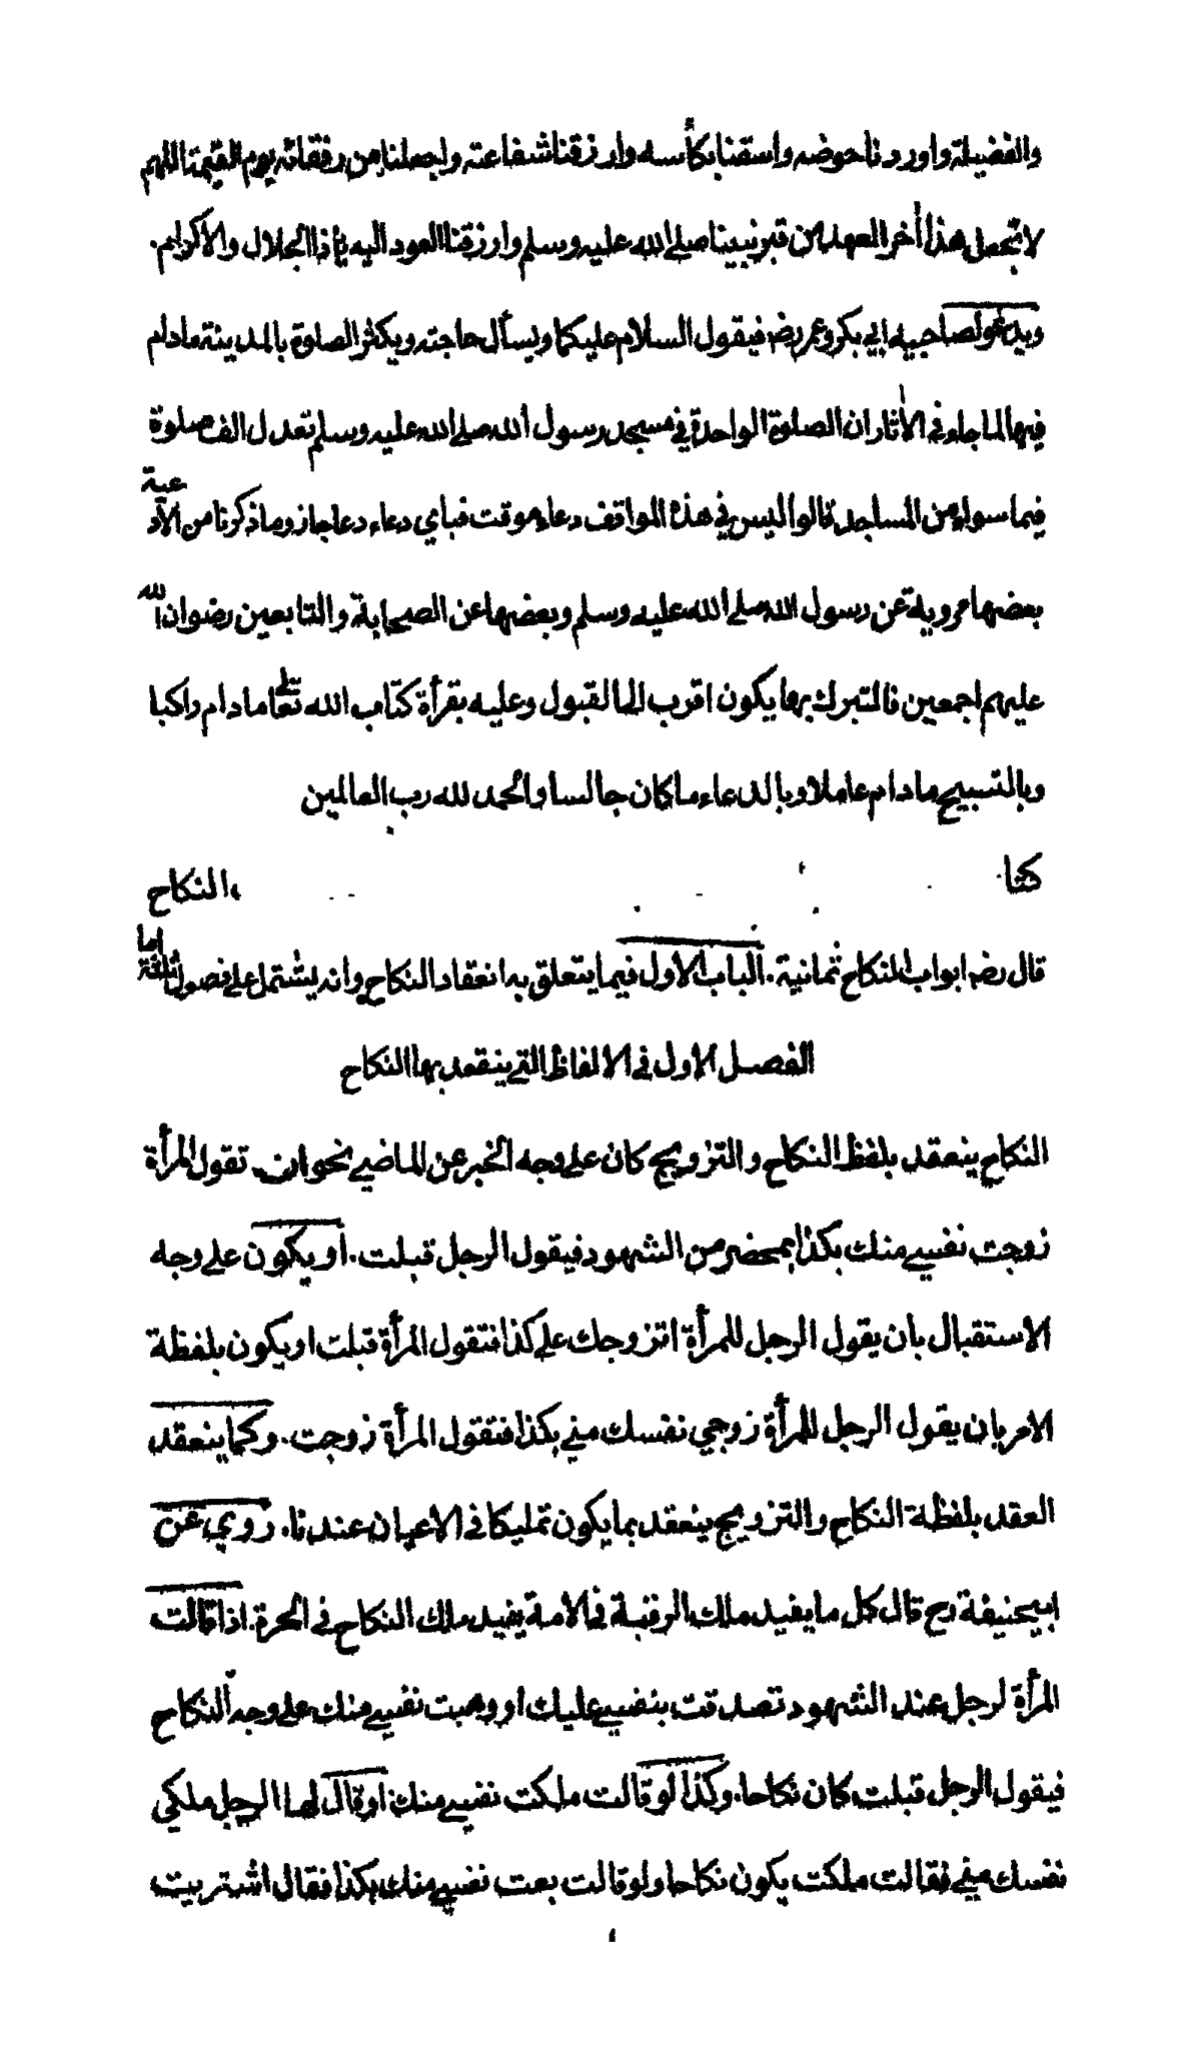 والفضيلة واوردنا حوضه واسقنا بكأسه وارزقنا شفاعته واجعلنا من رفقائه يوم القيمة اللهم
لا تجعل هذا أخر العهد من قبر نبينا صلى الله عليه وسلم وارزقنا العود اليه يا ذا الجلال والاكرام.
ويدعو لصاحبيه ابي بكر وعمر رضه فيقول السلام عليكما ويسأل حاجته ويكثر الصلوة بالمدينة مادام
فيها لما جاء في الأثار ان الصلوة الواحدة في مسجد رسول الله صلى الله عليه وسلم تعدل الف صلوة
فيما سواه من المساجد قالوا ليس في هذه المواقف دعاء موقت فباي دعاء دعا جاز وما ذكرنا من الادعية
بعضها مروية عن رسول الله صلى الله عليه وسلم وبعضها عن الصحابة والتابعين رضوان الله
عليهم اجمعين فالتبرك بها يكون اقرب الى القبول وعليه بقرأة كتاب الله تعالى مادام راكبا
وبالتسبيح مادام عاملا وبالدعاء ما كان جالسا والحمد لله رب العالمين
كتا ب النكاح
قال رضه ابواب النكاح ثمانية. الباب الاول فيما يتعلق به انعقاد النكاح وانه يشتمل على فصول ثلثة اما
الفصل الاول في الالفاظ التي ينعقد بها النكاح
النكاح ينعقد بلفظ النكاح والتزويج كان على وجه الخبر عن الماضي نحو ان تقول المرأة
زوجت نفسي منك بكذا بمحضر من الشهود فيقول الرجل قبلت. او يكون على وجه
الاستقبال بان يقول الرجل للمرأة اتزوجك على كذا فتقول المرأة قبلت او يكون بلفظة
الامر بان يقول الرجل للمرأة زوجي نفسك مني بكذا فتقول المرأة زوجت. وكما ينعقد
العقد بلفظة النكاح والتزويج ينعقد بما يكون تمليكا في الاعيان عندنا. روي عن
ابيحنيفة رح قال كل ما يفيد ملك الرقبة في الامة يفيد ملك النكاح في الحرة. اذا قالت
المرأة لرجل عند الشهود تصدقت بنفسي عليك او وهبت نفسي منك على وجه النكاح
فيقول الرجل قبلت كان نكاحا. وكذا لو قالت ملكت نفسي منك او قال لها الرجل ملكي
نفسك مني فقالت ملكت يكون نكاحا ولو قالت بعت نفسي منك بكذا فقال اشتريت